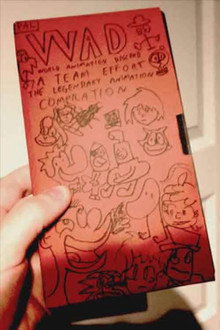 PAL
WAD
WORLD ANIMATION DISCORD
A TEAM EFFORT
THE LEGENDARY ANIMATION
COMPILATION